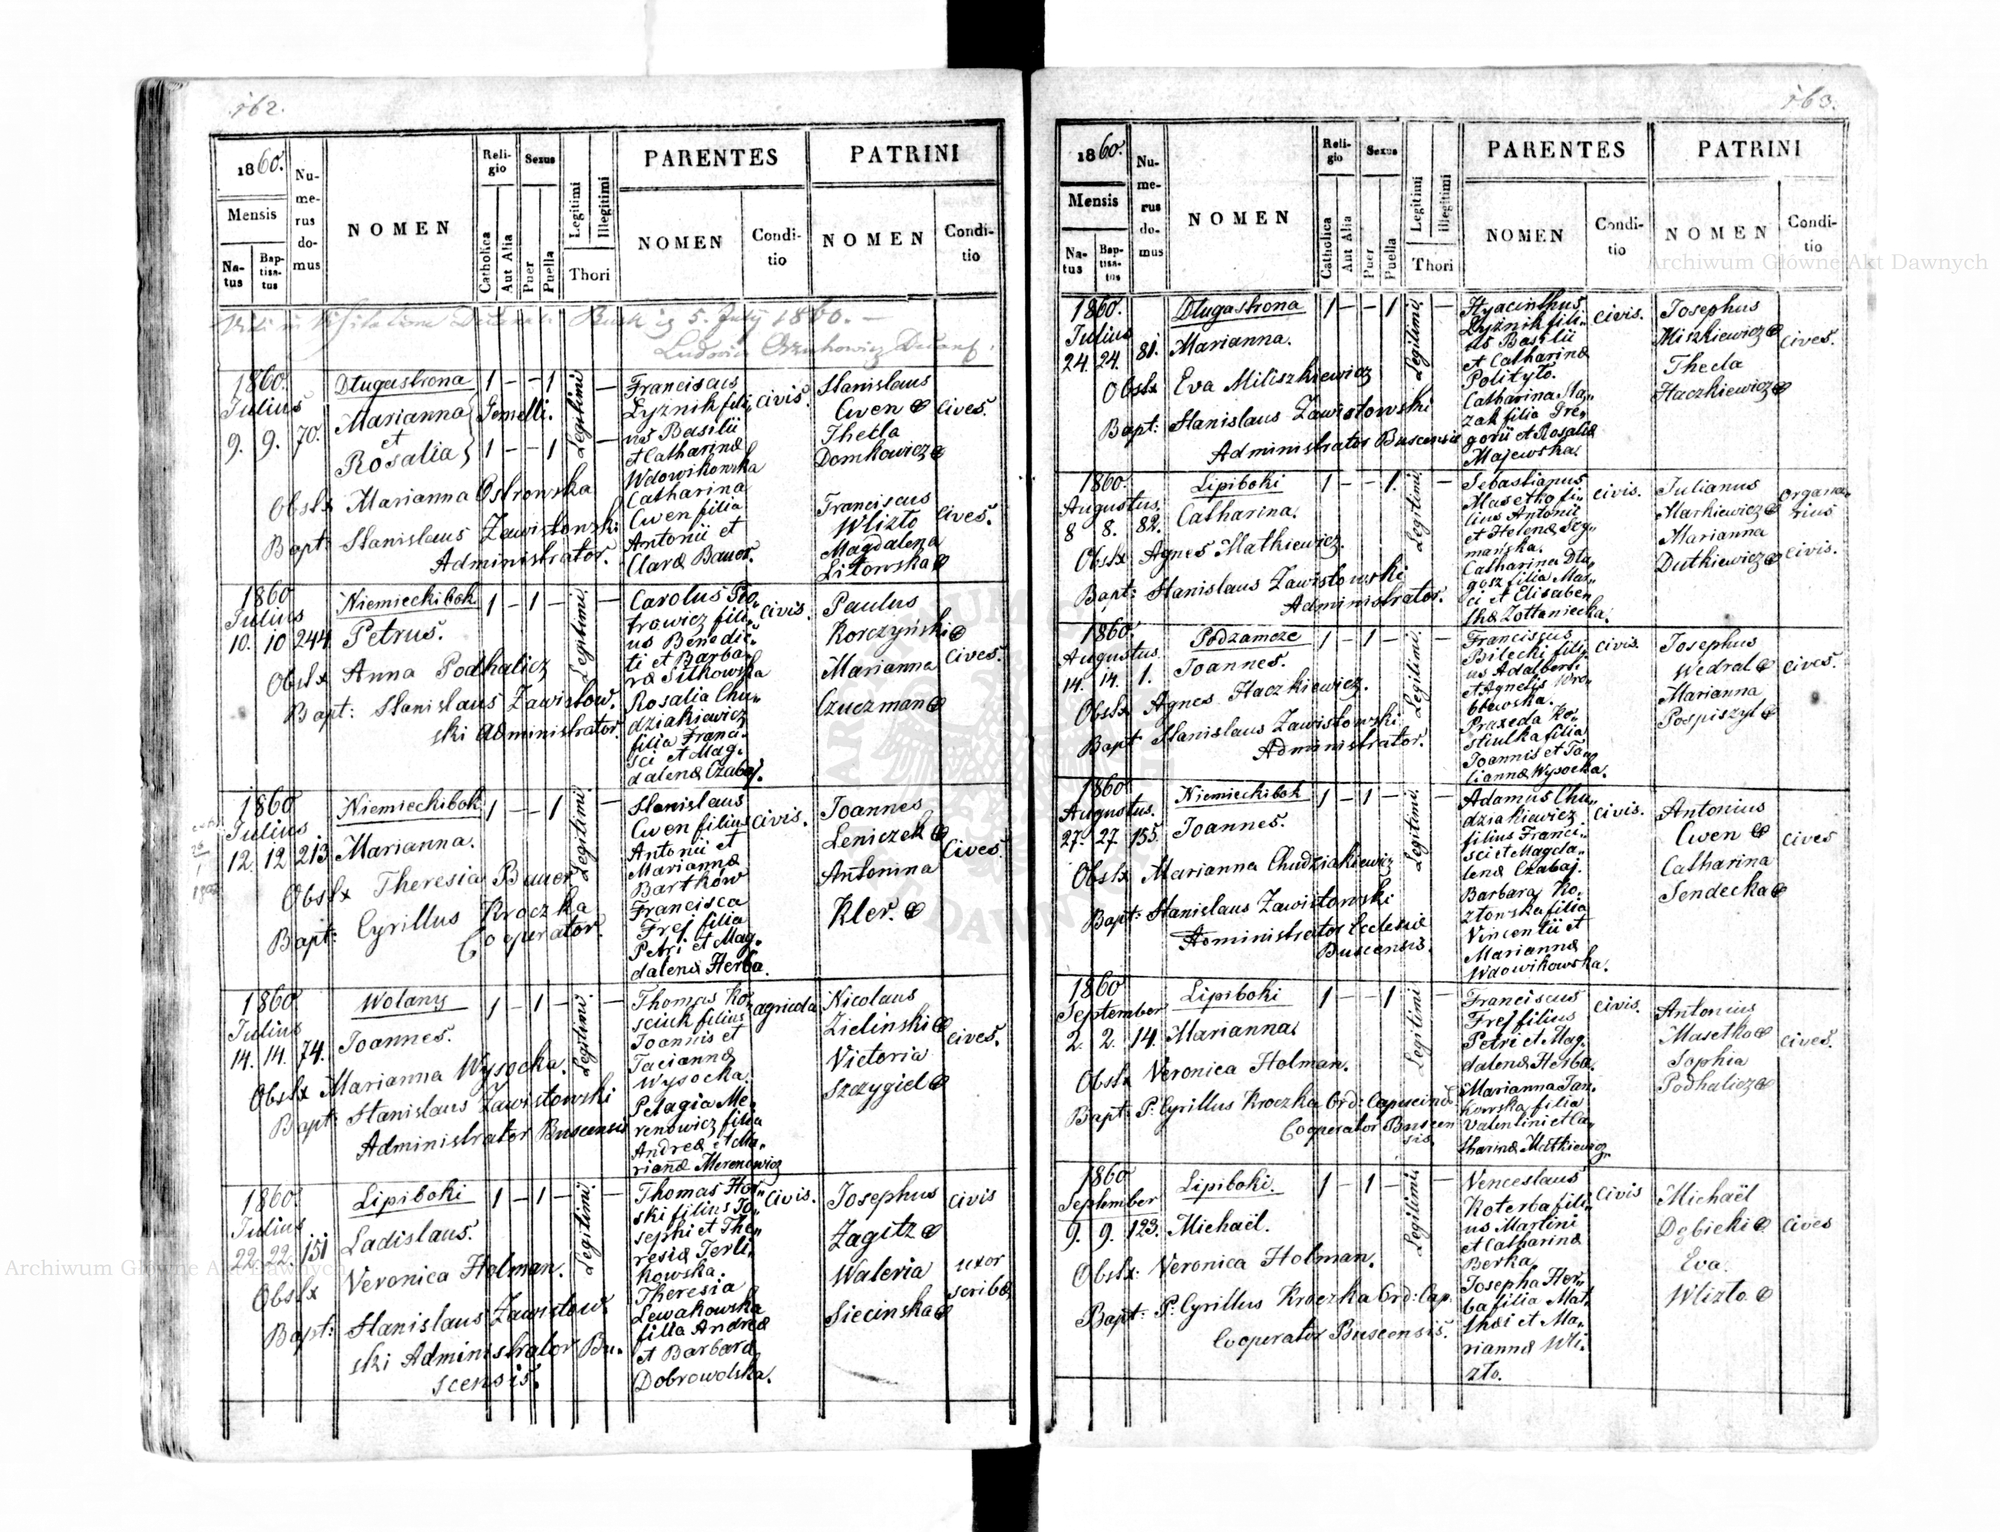 162.
1860.
Mensis
Na-
tus
Bap-
tisa-
tus
Nu-
me-
rus
do-
mus
NOMEN
Reli-
gio
Catholica
Aut Alia
Sexus
Puer
Puella
Legitimi
Illegitimi
Thori
PARENTES
NOMEN
Condi-
tio
PATRINI
NOMEN
Condi-
tio
5. July 1860. —
1860.
Julius
9. 9. 70.
Długastrona
Marianna
et
Rosalia
Gemelli.
1 – – 1 –
1 – – 1 –
Legitimi
Obstx Marianna Ostrowska
Bapt: Stanislaus Zawistowski
Administrator.
Franciscus
Łyznik fili„
us Basilii
et Catharinæ
Wdowikowska
Catharina
Cwen filia
Antonii et
Claræ Bauer.
civis.
Stanislaus
Cwen
Thecla
Domkowicz
cives.
Franciscus
Wlizło
Magdalena
Litowska
cives.
1860
Julius
10. 10 244
Niemieckibok
Petrus.
1 – 1 – –
Legitimi.
Obstx Anna Podhalicz
Bapt: Stanislaus Zawistow„
ski Administrator.
Carolus Pio„
trowicz fili„
us Benedic„
ti et Barba„
ræ Sitkowska
Rosalia Chu„
dziakiewicz
filia Franci„
sci et Mag„
dalenæ Czabaj.
civis.
Paulus
Korczyński
Marianna
Czuczman
cives.
1860
Julius
12. 12 213
Niemieckibok
Marianna.
1 – – 1 –
Legitimi.
Obstx Theresia Bauer
Bapt: Cyrillus Kroczka
Cooperator.
Stanislaus
Cwen filius
Antonii et
Mariannæ
Bartków
Francisca
Frej filia
Petri et Mag„
dalenæ Herba.
civis.
Joannes
Leniczek
Antonina
Kler.
Cives.
1860
Julius
14. 14. 74.
Wolany
Joannes.
1 – 1 – –
Legitimi.
Obstx Marianna Wysocka.
Bapt: Stanislaus Zawistowski
Administrator Buscensis
Thomas Ko„
sciuk filius
Joannis et
Tacianna
Wysocka.
Pelagia Me„
renowicz filia
Andreæ et Ma„
riannæ Merenowicz
agricola
Nicolaus
Zielinski
Victoria
Szczygieł
cives.
1860.
Julius
22. 22. 151
Lipiboki
Ladislaus.
1 – 1 – –
Legitimi.
Obstx Veronica Holman.
Bapt: Stanislaus Zawistow„
ski Administrator Bu„
scensis.
Thomas Hor„
ski filius Jo„
sephi et The„
resiæ Terli„
kowska.
Theresia
Lewakowska
filia Andreæ
et Barbaræ
Dobrowolska.
civis.
Josephus
Zagitz
Waleria
Siecinska
civis
uxor
scribæ
163.
1860.
Mensis
Na-
tus
Bap-
tisa-
tus
Nu-
me-
rus
do-
mus
NOMEN
Reli-
gio
Catholica
Aut Alia
Sexus
Puer
Puella
Legitimi
Illegitimi
Thori
PARENTES
NOMEN
Condi-
tio
PATRINI
NOMEN
Condi-
tio
1860.
Julius
24. 24. 81.
Długastrona
Marianna.
1 – – 1 –
Legitimi.
Obstx Eva Miliszkiewicz
Bapt: Stanislaus Zawistowski
Administrator Buscensis
Hyacinthus
Łyznik fili„
us Basilii
et Catharinæ
Polityło.
Catharina Sta„
zak filia Gre„
gorii et Rosaliæ
Majewska.
civis.
Josephus
Miszkiewicz
Thecla
Haczkiewicz
cives.
1860.
Augustus.
8 8. 82.
Lipiboki
Catharina.
1 – – 1. –
Legitimi.
Obstx Agnes Mathiewicz.
Bapt: Stanislaus Zawistowski
Administrator.
Sebastianus
Masetko fi„
lius Antonii
et Helenæ Szy„
mańska.
Catharina Dłu„
gosz filia Mar„
ci et Elisabe„
thæ Zołtaniecka.
civis.
Julianus
Markiewicz
Marianna
Dutkiewicz
Organa„
rius
civis.
1860.
Augustus.
14. 14. 1.
Podzamcze
Joannes.
1 – 1 – –
Legitimi.
Obstx Agnes Haczkiewicz.
Bapt Stanislaus Zawistowski
Administrator.
Franciscus
Bilecki fili„
us Adalberti
et Agnetis Wro„
błewska.
Praxeda Ko„
stiulka filia
Joannis et Jou„
liannæ Wysocka.
civis.
Josephus
Wedral
Marianna
Pospiszyl
cives.
1860
Augustus.
27. 27. 155.
Niemieckibok
Joannes.
1 – 1 – –
Legitimi.
Obstx Marianna Chudziakiewicz
Bapt: Stanislaus Zawistowski
Administrator Ecclesiæ
Buscensis.
Adamus Chu„
dziakiewicz
filius Franci„
sci et Magda„
lenæ Czabaj.
Barbara Ko„
złowska filia
Vincentii et
Mariannæ
Wdowikowska.
civis.
Antonius
Cwen
Catharina
Sendecka
cives
1860
September
2. 2. 14.
Lipiboki
Marianna
1 – – 1 –
Legitimi
Obstx Veronica Holman.
Bapt: P. Cyrillus Kroczka Ord: Capucino:
Cooperator Buscen
sis.
Franciscus
Frej filius
Petri et Mag„
dalenæ Herba.
Marianna Jan„
kowska filia
Valentini et Ca„
tharinæ Matkiewicz.
civis.
Antonius
Masetko
Sophia
Podhalicz
cives.
1860
September
9. 9. 123.
Lipiboki.
Michaël.
1 – 1 – –
Legitimi.
Obstx: Veronica Holman.
Bapt: P: Cyrillus Kroczka Ord: Cap:
Cooperator Buscensis.
Venceslaus
Koterba fili„
us Martini
et Catharinæ
Berka.
Josepha Her„
ba filia Mat„
thæi et Ma„
riannæ Wli„
zło.
civis
Michaël
Dębicki
Eva
Wlizło
cives
Archiwum Główne Akt Dawnych
Archiwum Główne Akt Dawnych